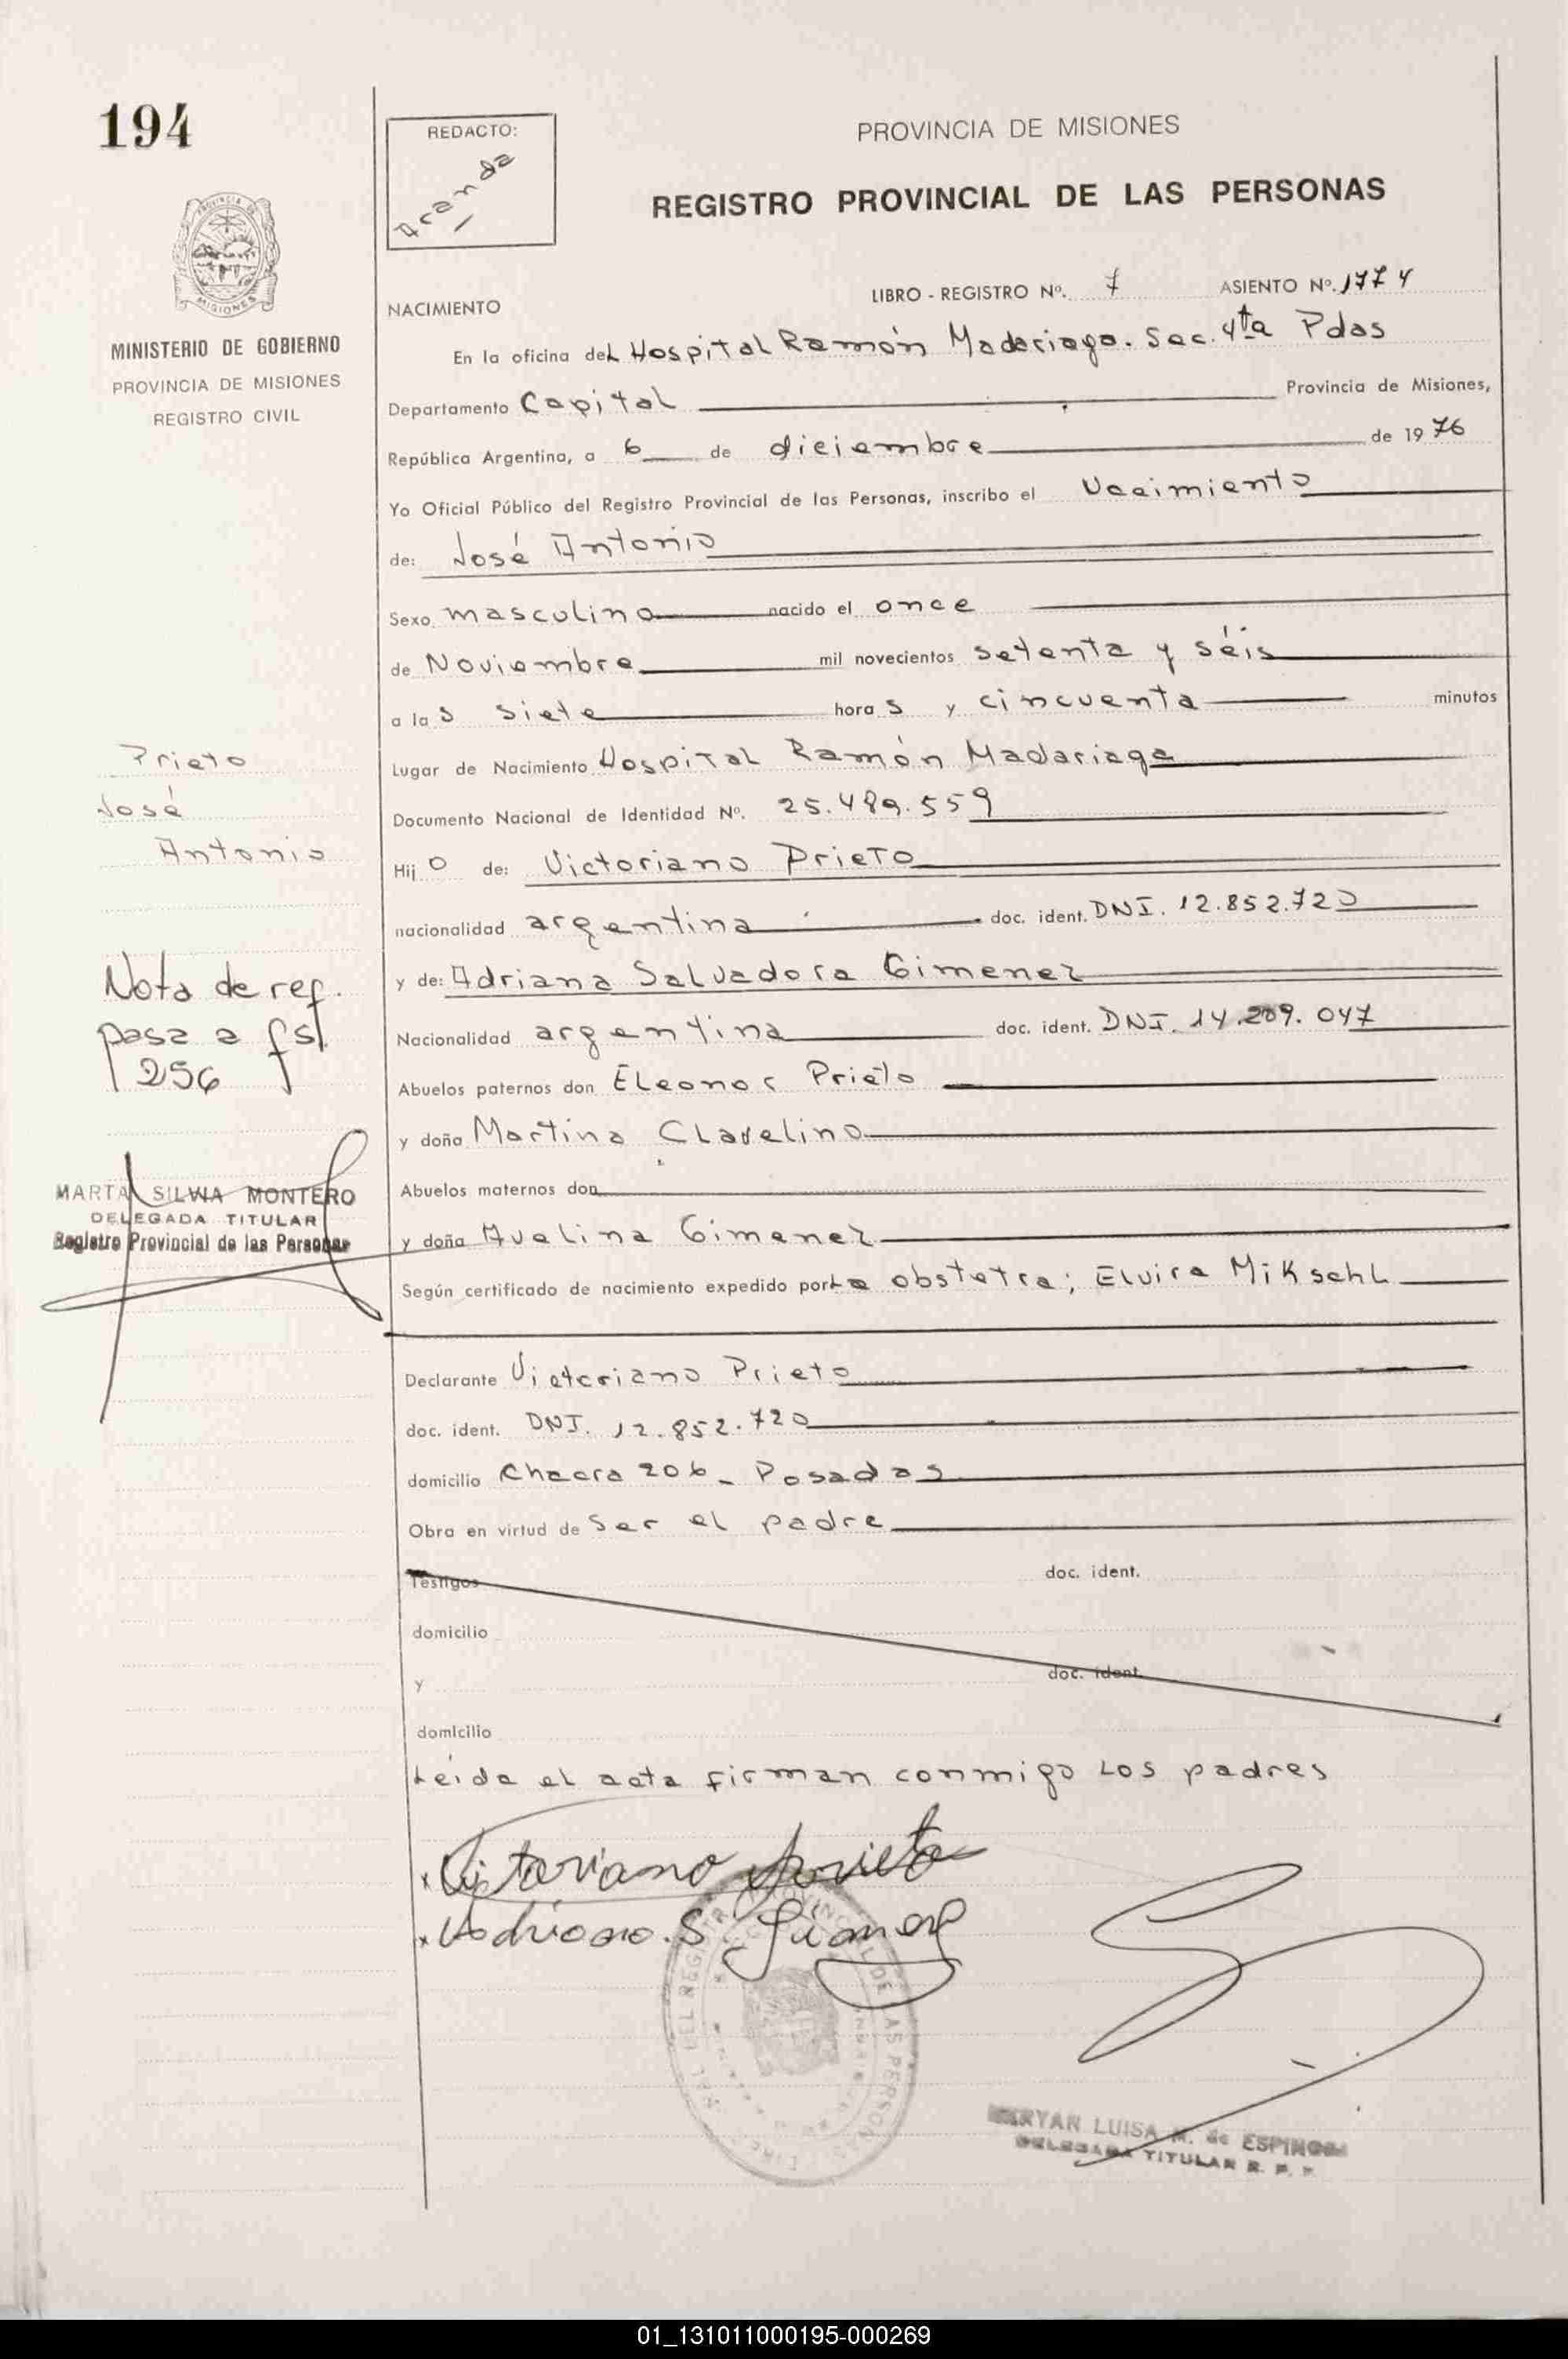 194
REDACTO:
Aranda
PROVINCIA DE MISIONES
REGISTRO PROVINCIAL DE LAS PERSONAS
MISIONES
MINISTERIO DE GOBIERNO
PROVINCIA DE MISIONES
REGISTRO CIVIL
NACIMIENTO
LIBRO - REGISTRO Nº. 7 ASIENTO Nº. 1774
En la oficina del Hospital Ramón Madariaga. Sec. 4ta Pdas
Departamento Capital Provincia de Misiones,
República Argentina, a 6 de diciembre de 1976
Yo Oficial Público del Registro Provincial de las Personas, inscribo el Nacimiento
de: José Antonio
Sexo masculino nacido el once
de Noviembre mil novecientos setenta y séis
a las siete horas y cincuenta minutos
Lugar de Nacimiento Hospital Ramón Madariaga
Documento Nacional de Identidad Nº. 25.489.559
Hijo de: Victoriano Prieto
nacionalidad argentina doc. ident. DNI. 12.852.720
y de: Adriana Salvadora Gimenez
Nacionalidad argentina doc. ident. DNI. 14.209.047
Abuelos paternos don Eleonor Prieto
y doña Martina Clavelino
Abuelos maternos don
y doña Avelina Gimenez
Según certificado de nacimiento expedido por La obstetra; Elvira Mikschl
Declarante Victoriano Prieto
doc. ident. DNI. 12.852.720
domicilio Chacra 206 - Posadas
Obra en virtud de ser el padre
Testigos doc. ident.
domicilio
y doc. ident.
domicilio
Leida el acta firman conmigo los padres
Prieto
José
Antonio
Nota de ref.
pasa a fs.
256
MARTA SILVIA MONTERO
DELEGADA TITULAR
Registro Provincial de las Personas
x Vitoriano Prieto
x Adriana. S. Gimenez
DEL REGISTRO PROVINCIAL DE LAS PERSONAS
LUISA M. de ESPINOSA
DELEGADA TITULAR R. P. P.
01_131011000195-000269